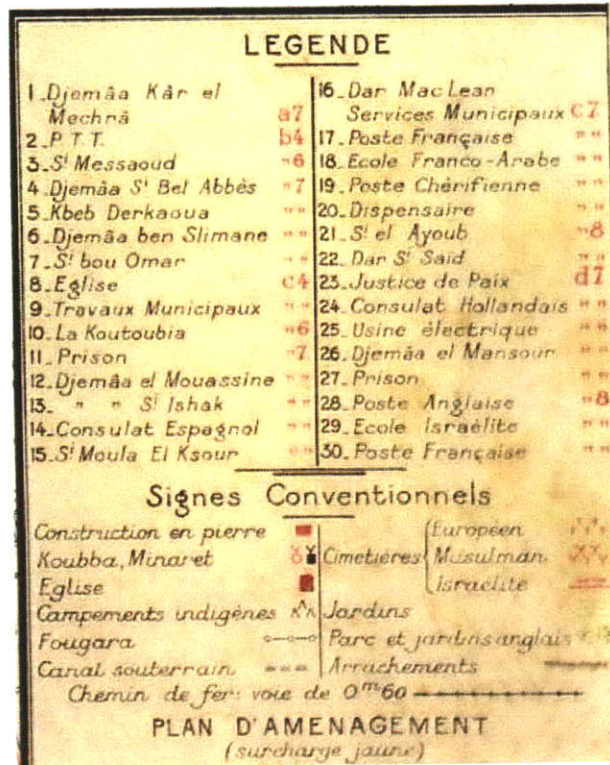 LEGENDE
1_Djemâa Kâr el
Mechrâ a7
2_P.T.T. b4
3_St Messaoud "6
4_Djemâa St Bel Abbès "7
5_Kbeb Derkaoua " "
6_Djemâa ben Slimane " "
7_St bou Omar " "
8_Eglise c4
9_Travaux Municipaux " "
10_La Koutoubia "6
11_Prison "7
12_Djemâa el Mouassine " "
13_ " " St Ishak " "
14_Consulat Espagnol " "
15_St Moula El Ksour " "
16_Dar Mac Lean
Services Municipaux C7
17_Poste Française " "
18_Ecole Franco-Arabe " "
19_Poste Chérifienne " "
20_Dispensaire " "
21_St el Ayoub "8
22_Dar St Saïd " "
23_Justice de Paix d7
24_Consulat Hollandais " "
25_Usine électrique " "
26_Djemâa el Mansour " "
27_Prison " "
28_Poste Anglaise "8
29_Ecole Israèlite " "
30_Poste Française " "
Signes Conventionnels
Construction en pierre
Koubba, Minaret
Eglise
Campements indigènes
Fougara
Canal souterrain
Cimetières
Européen
Musulman
Israèlite
Jardins
Parc et jardins anglais
Arrachements
Chemin de fer: voie de 0m60
PLAN D'AMENAGEMENT
(surcharge jaune)